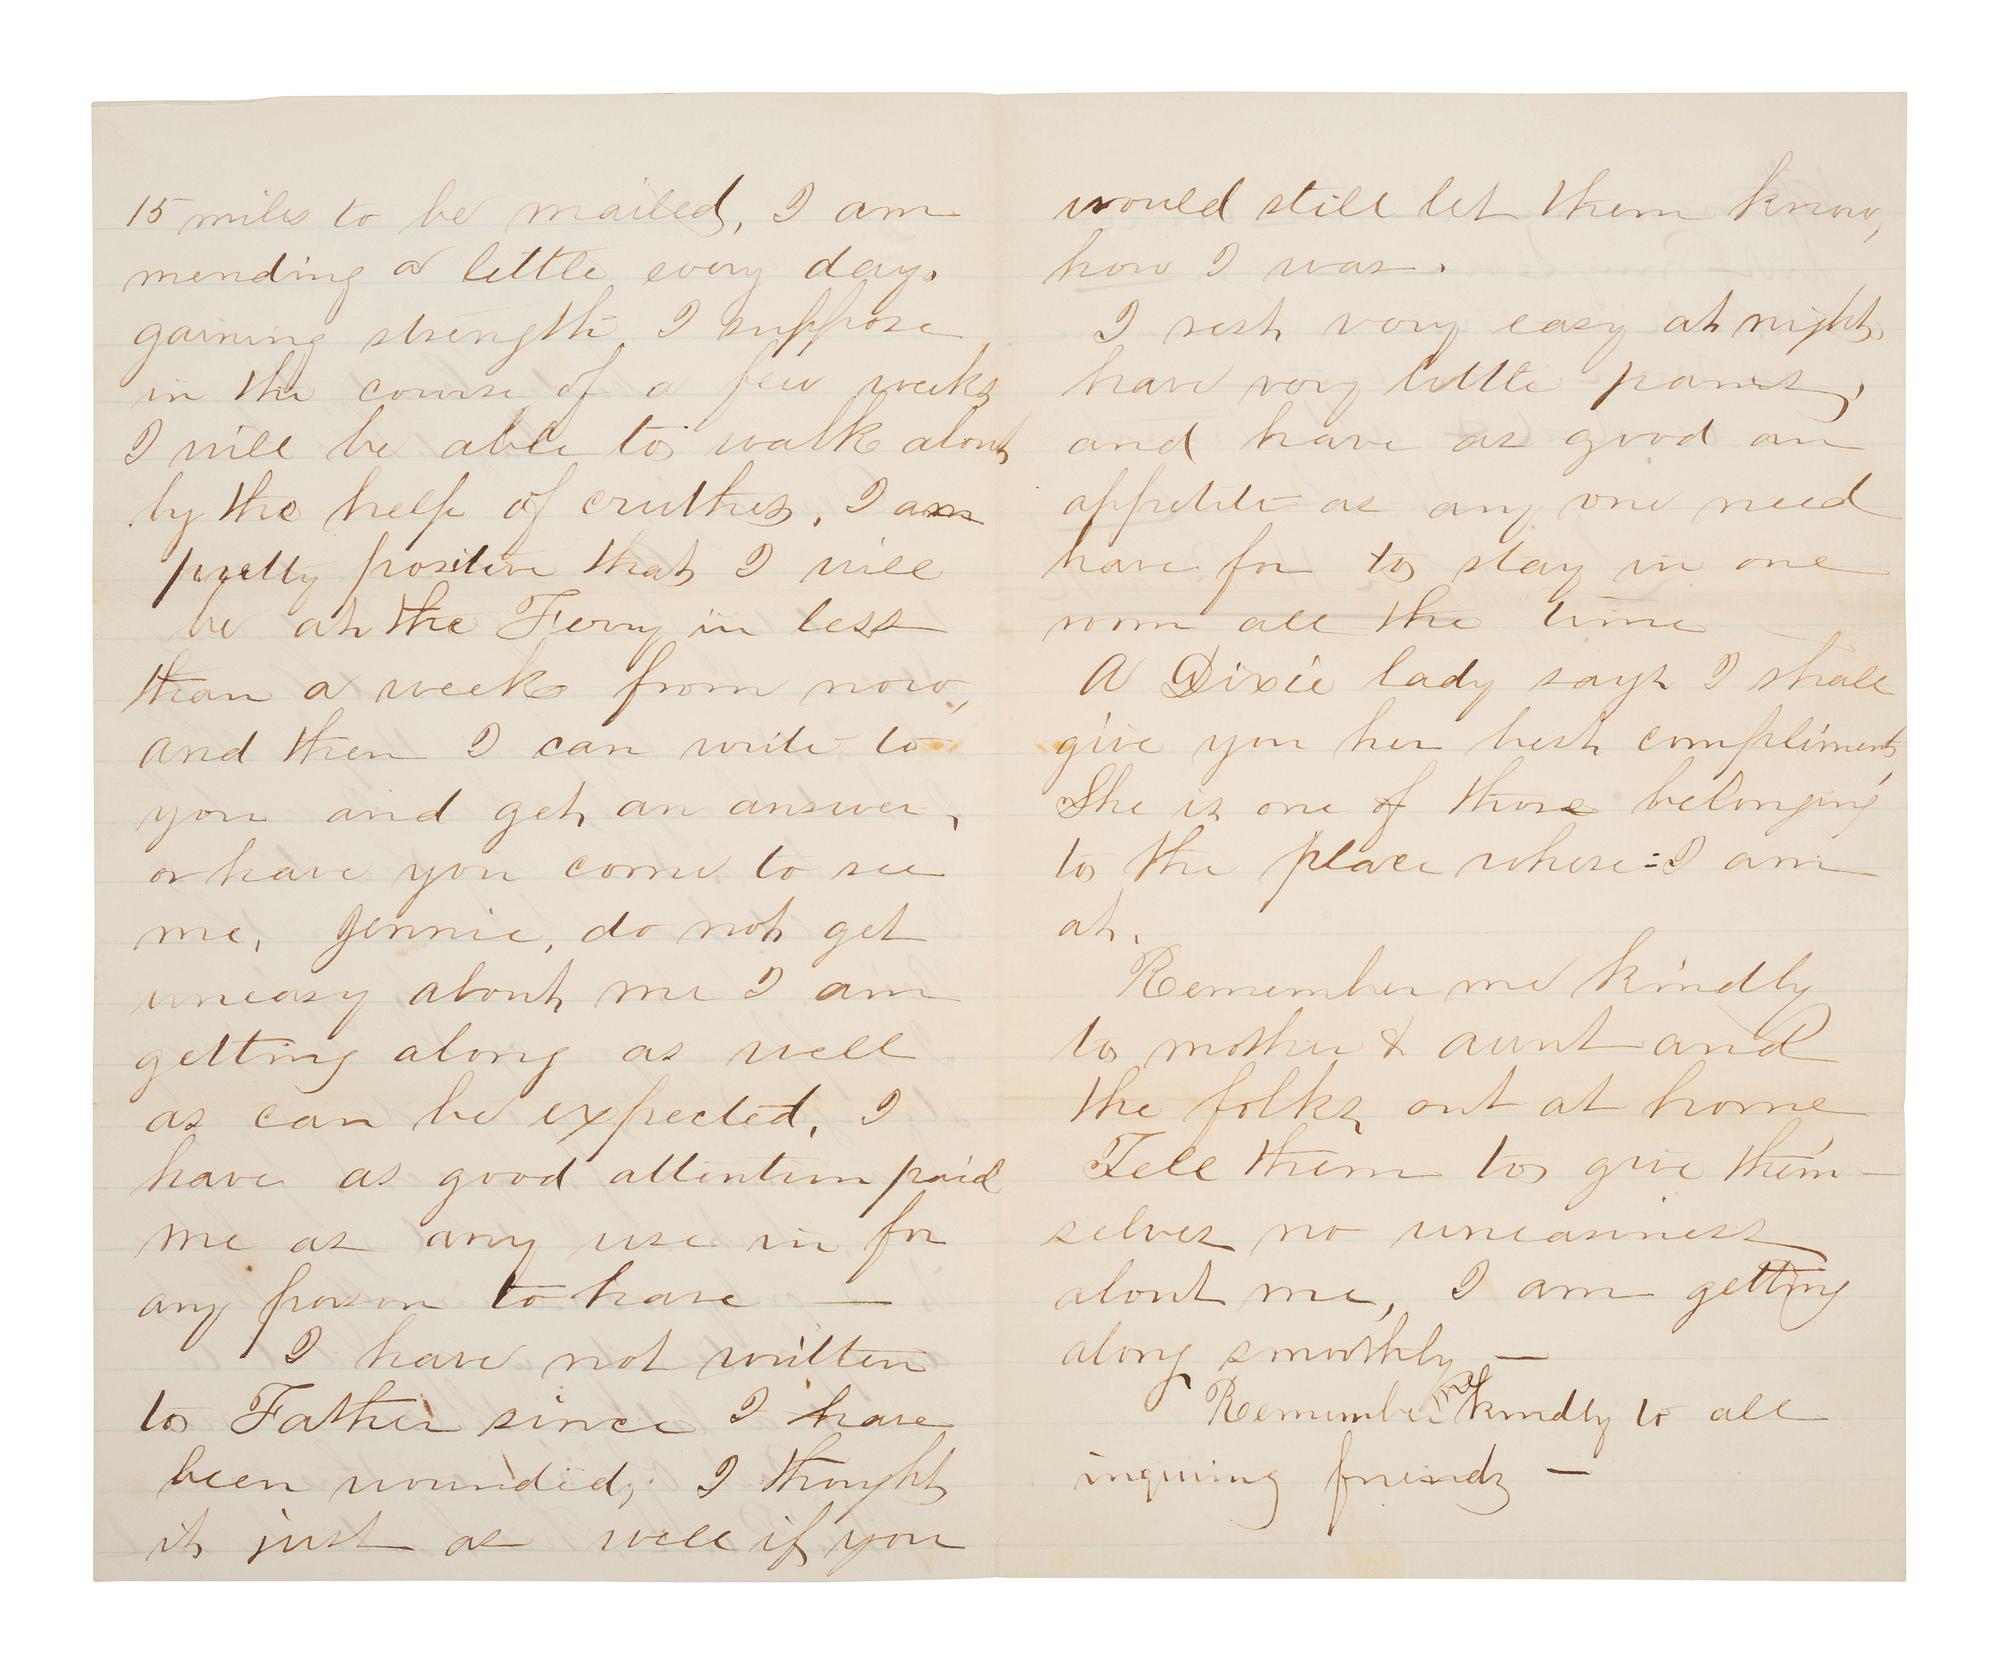 15 miles to be mailed, I am
mending a little every day,
gaining strength I suppose
in the course of a few weeks
I will be able to walk about
by the help of cruthes, I am
pretty positive that I will
be at the Ferry in less
than a week from now,
and then I can write to
you and get an answer,
or have you come to see
me, Jennie, do not get
uneasy about me I am
getting along as well
as can be expected, I
have as good attention paid
me as any use in for
any person to have —
I have not written
to Father since I have
been wounded, I thought
it just as well if you
would still let them know,
how I was.
I rest very easy at night,
have very little pains,
and have as good an
appetite as any one need
have for to stay in one
room all the time
A Dixie lady says I shall
give you her best compliments
She is one of those belonging
to the place where I am
at.
Remember me kindly
to mother & aunt and
the folks out at home
Tell them to give them-
selves no uneasiness
about me, I am getting
along smoothly —
Remember me kindly to all
inquiring friends —